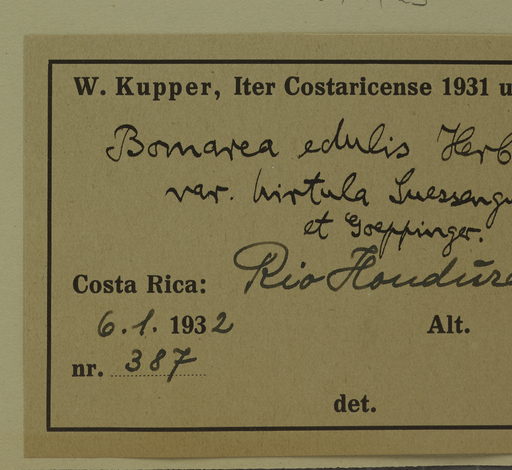 W. Kupper, Iter Costaricense 1931 u
Bomarea edulis Herb
var. hirtula Suesseng
et Goeppinger.
Costa Rica: Rio Hondure
6. 1. 1932 Alt.
nr. 387
det.